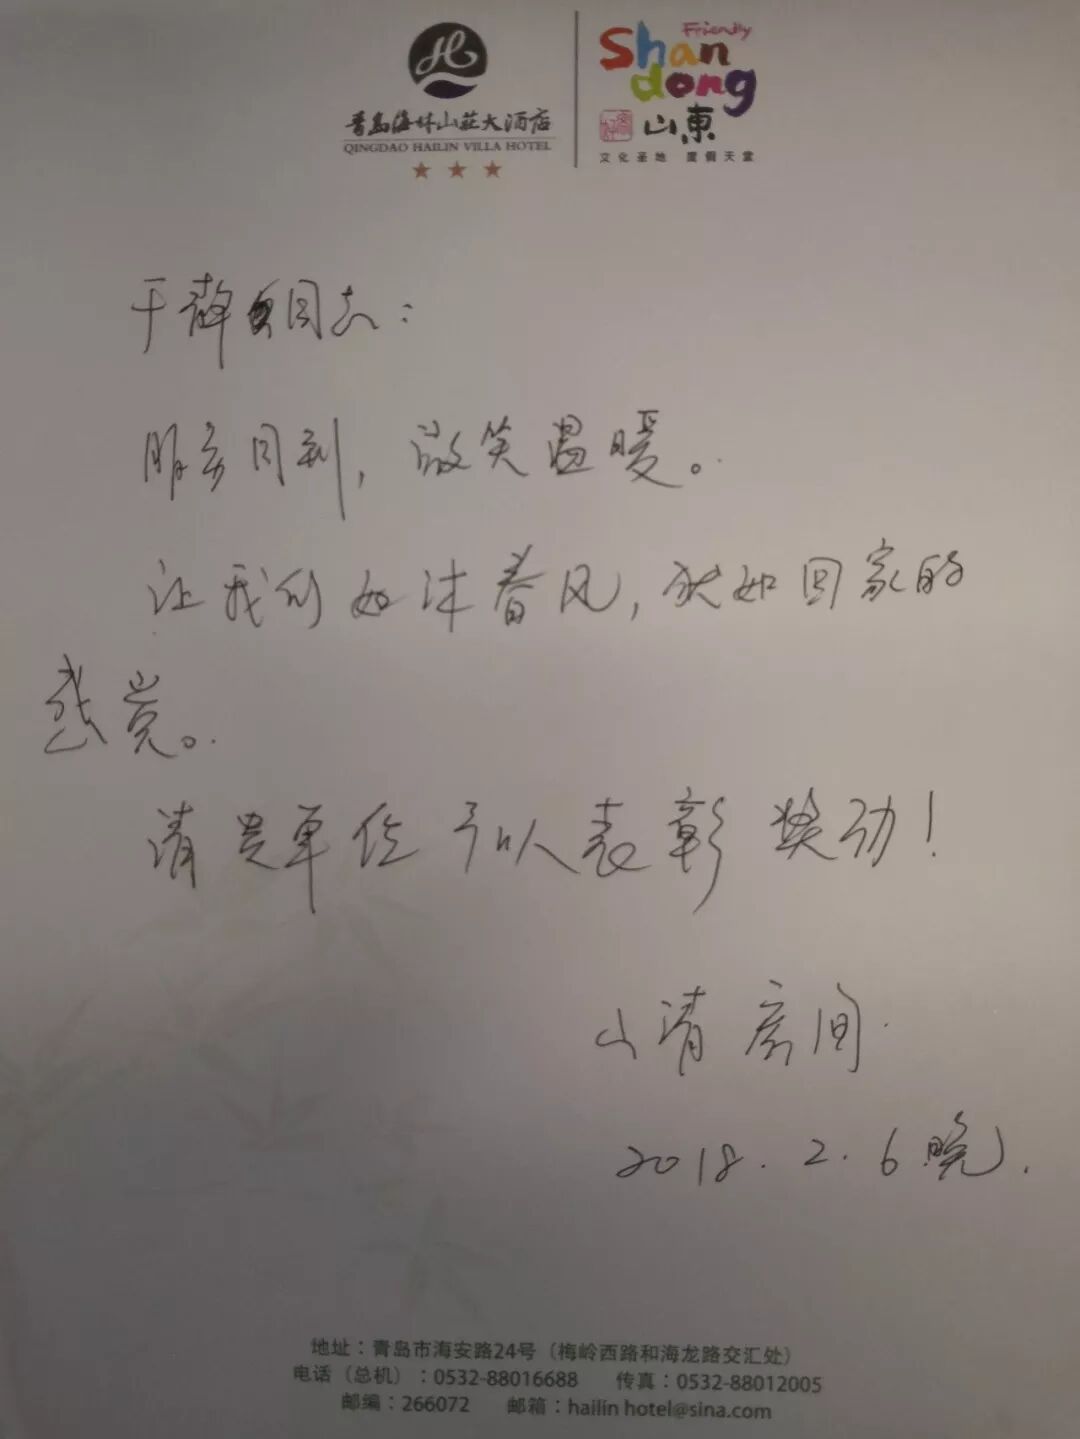 Friendly
Shan
dong
山東
文化圣地 度假天堂
青岛海林山莊大酒店
QINGDAO HAILIN VILLA HOTEL
于静同志：
服务周到，微笑温暖。
让我们如沐春风，犹如回家的
感觉。
请贵单位予以表彰奖励！
山清房间
2018.2.6晚.
地址：青岛市海安路24号（梅岭西路和海龙路交汇处）
电话（总机）：0532-88016688 传真：0532-88012005
邮编：266072 邮箱：hailin hotel@sina.com